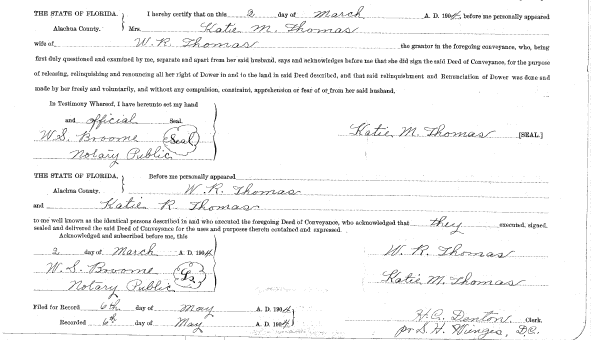 THE STATE OF FLORIDA. } I hereby certify that on this 2 day of March A. D. 1904, before me personally appeared
Alachua County. Mrs. Katie M. Thomas
wife of W. R. Thomas the grantor in the foregoing conveyance, who, being
first duly questioned and examined by me, separate and apart from her said husband, says and acknowledges before me that she did sign the said Deed of Conveyance, for the purpose
of releasing, relinquishing and renouncing all her right of Dower in and to the land in said Deed described, and that said relinquishment and Renunciation of Dower was done and
made by her freely and voluntarily, and without any compulsion, constraint, apprehension or fear of or from her said husband.
In Testimony Whereof, I have hereunto set my hand
and official Seal
W. S. Broome (Seal) Katie M. Thomas [SEAL]
Notary Public
THE STATE OF FLORIDA. } Before me personally appeared
Alachua County. W. R. Thomas
and Katie R. Thomas
to me well known as the identical persons described in and who executed the foregoing Deed of Conveyance, who acknowledged that they executed, signed,
sealed and delivered the said Deed of Conveyance for the uses and purposes therein contained and expressed.
Acknowledged and subscribed before me, this
2 day of March A. D. 1904 W. R. Thomas
W. S. Broome
Notary Public Katie M. Thomas
Filed for Record 6th day of May A. D. 1904 H. C. Denton Clerk.
Recorded 6th day of May pr S. H. Wienges, D.C.